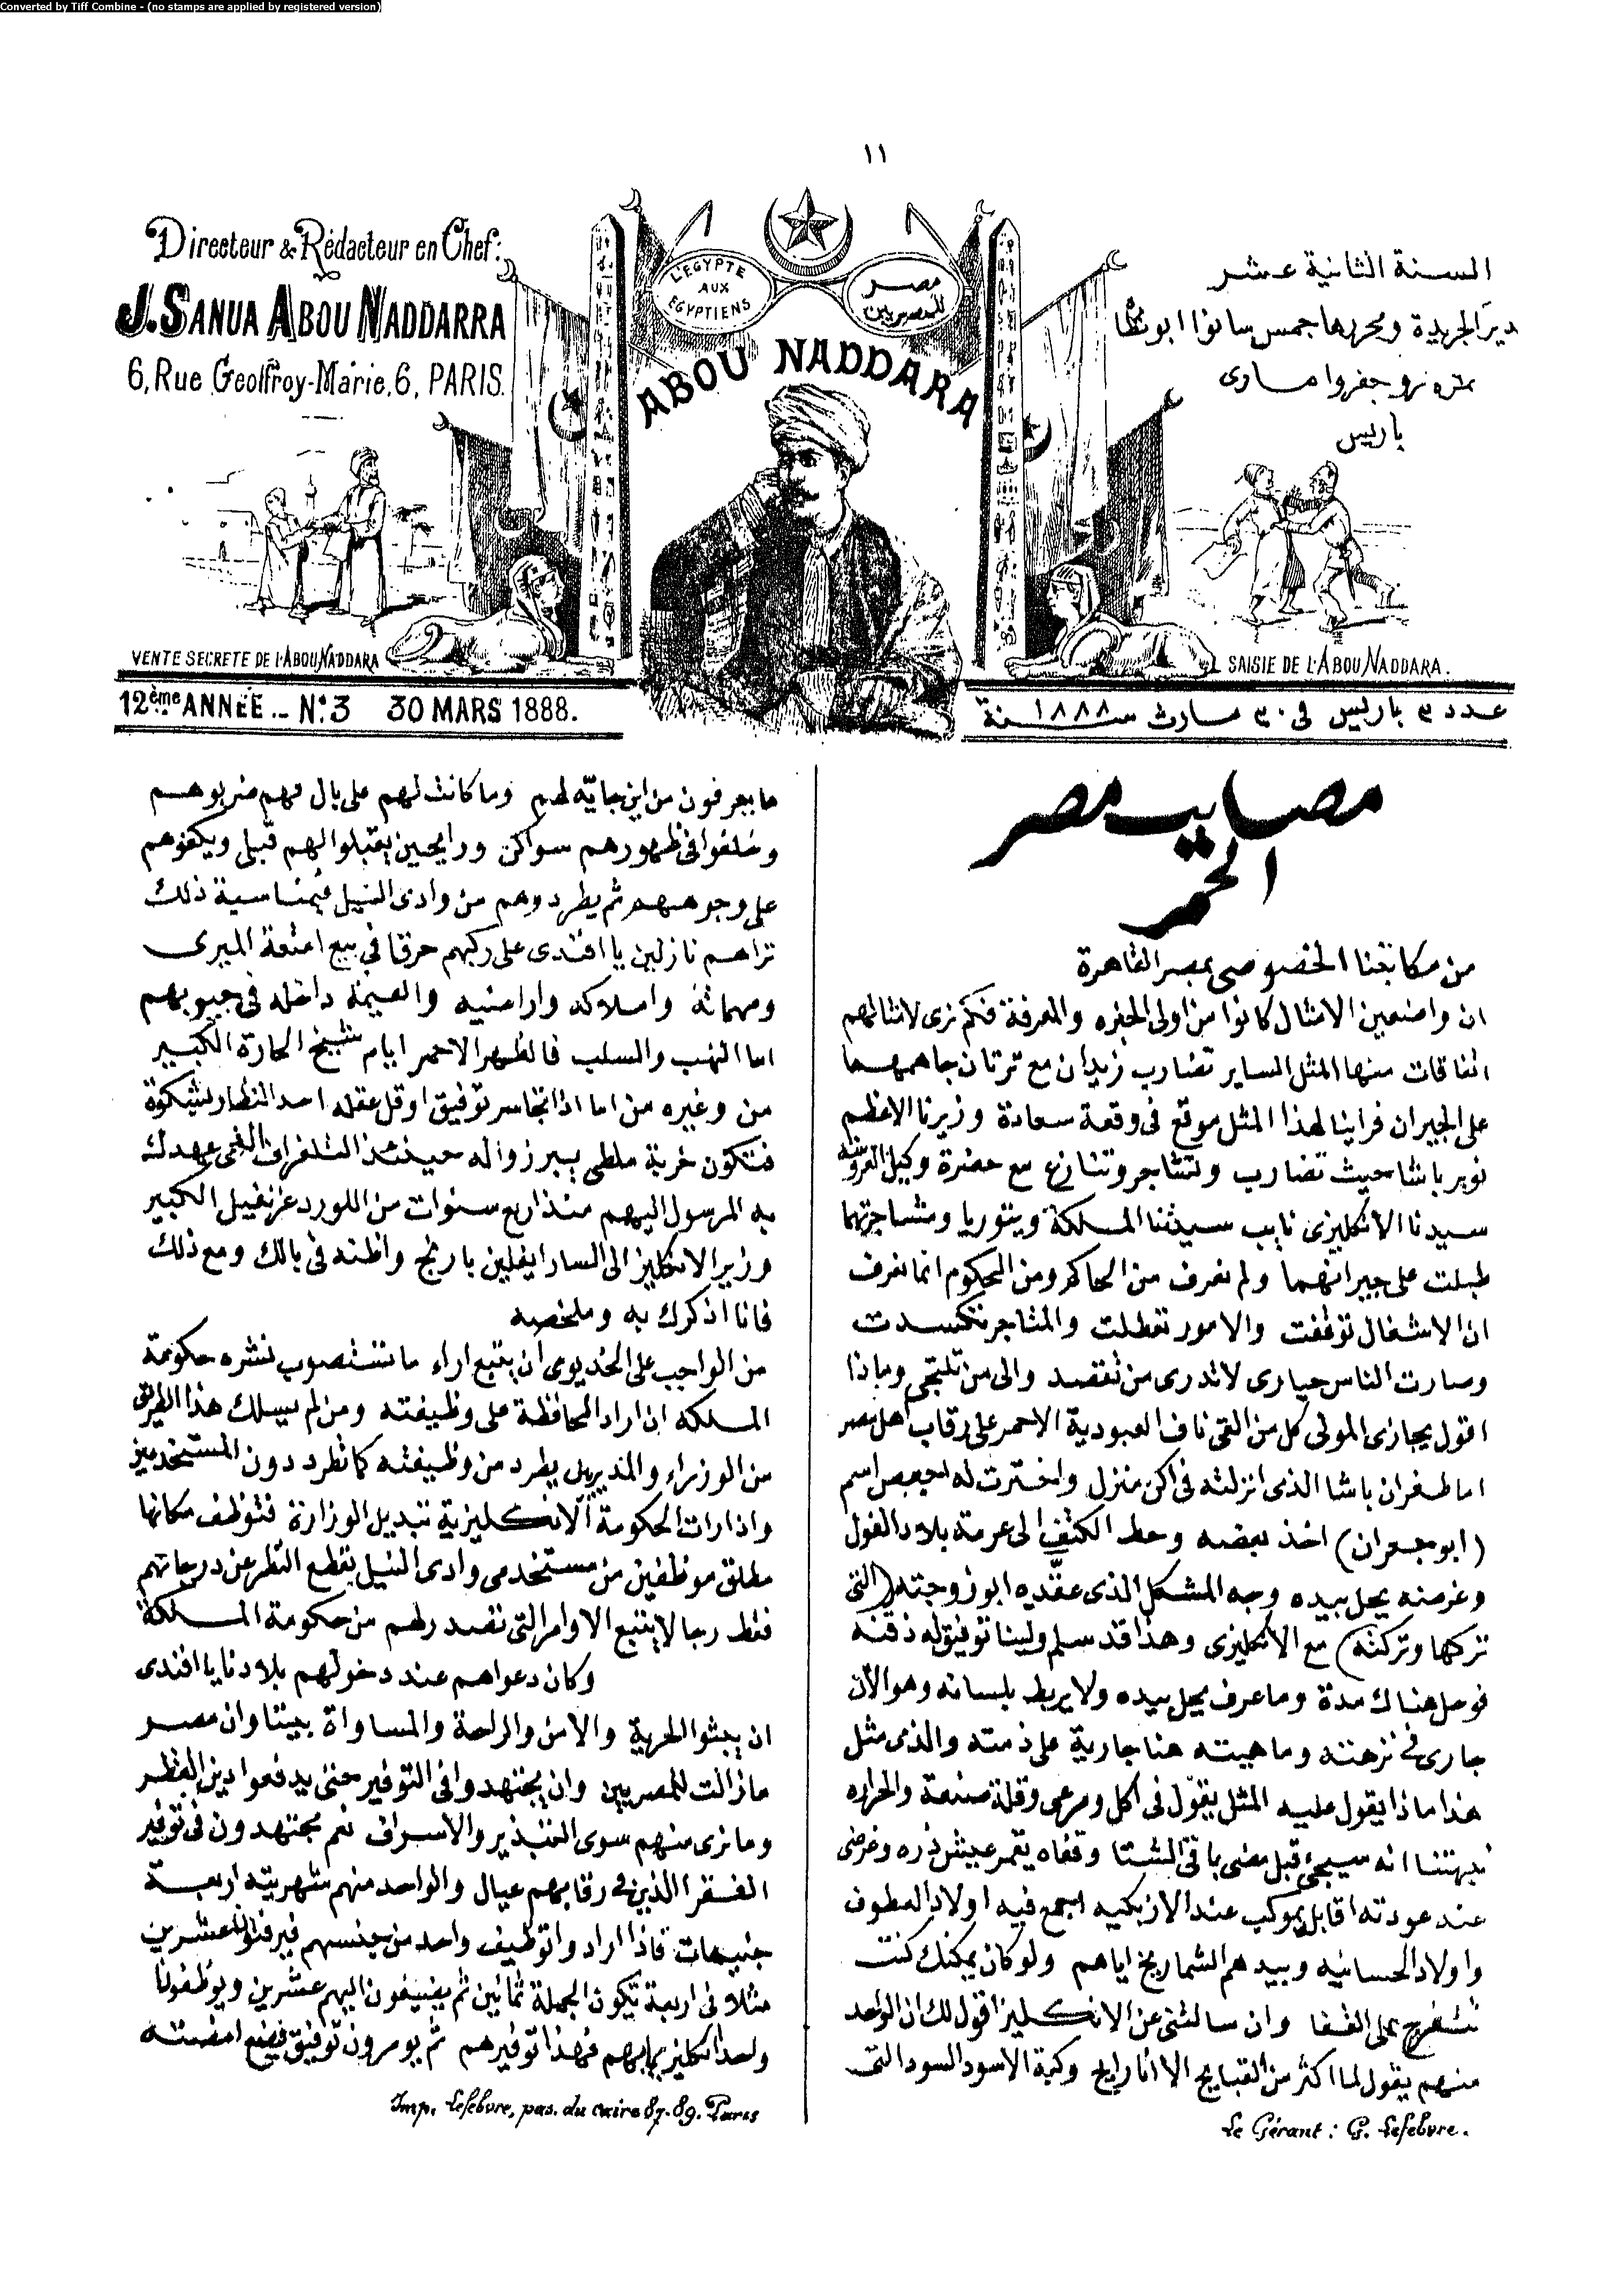 Converted by Tiff Combine - (no stamps are applied by registered version)
١١
Directeur & Rédacteur en Chef:
J. SANUA ABOU NADDARRA
6, Rue Geoffroy-Marie, 6, PARIS.
L'EGYPTE
AUX
EGYPTIENS
مصر
للمصريين
ABOU NADDARA
السنة الثانية عشر
مدير الجريدة ومحررها جمس سانوا ابو نظارا
نمره ٦ رو جفروا مارى
باريس
VENTE SECRETE DE L'ABOU NADDARA
SAISIE DE L'ABOU NADDARA.
12ème ANNÉE _ No. 3 30 MARS 1888.
عدد ٣ باريس فى ٣٠ مارث سنة ١٨٨٨
مصايب مصر
الحمر
من مكاتبنا الخصوصى بمصر القاهرة
ان واضعين الامثال كانوا من اولى الخبره والمعرفة فكم نرى لامثالهم
اتفاقات منها المثل الساير تضارب زيدان مع ترتان جا همهما
على الجيران فراينا لهذا المثل موقع فى وقعة سعادة وزيرنا الاعظم
نوبر باشا حيث تضارب وتشاجر وتنازع مع حضرة وكيل
سيدنا الانكليزى نايب سيدتنا الملكة ويتوريا ومشاجرتهما
طبلت على جيرانهما ولم نعرف من الحاكم ومن المحكوم انما نعرف
ان الاشغال توقفت والامور تعطلت والمتاجر تكسدت
وصارت الناس حيارى لاتدرى من تقصد والى من تلتجى وماذا
اقول يجازى المولى كل من القى ناف العبودية الاحمر على رقاب اهل مصر
اما طغران باشا الذى انزلته فى اكن منزل واخترت له اسم
(ابو جعران) اخذ بعضه وحط الكتف الى عرمة بلاد الفول
وغرضه يحل بيده وجه المشكل الذى عقده ابو زوجته (التى
تركها وتركته) مع الانكليزى وهذا قد سلم ولينا توفيق له ذقنه
فوصل هناك مدة وما عرف يحل بيده ولا يربط بلسانه وهو الآن
جارى فى نزهته وماهيته هنا جارية على ذمته والذى مثل
هذا ماذا يقول عليه المثل يقول فى اكل ومرعى وقلة صنعة والحراره
نبهتنا انه سيجئ قبل مضى باقى الشتا وقفاه يقمر عيش ذره وغرضى
عند عودته اقابله بموكب عند الازبكيه اجمع فيه اولاد العطوف
واولاد الحسانيه وبيدهم الشماريخ اياهم ولو كان يمكنك كنت
تتفرج على القفا وان سالتنى عن الانكليز اقول لك ان الواحد
منهم يقول لما اكثر من القبايح الا انا رايح وكبة الاسود السود التى
Le Gérant: G. Lefebvre.
ما يعرفون من اين جايه لهم وما كانت لهم على بال فهم ضربوهم
فى ظهورهم سواكن ورايحين يقبلوا لهم قبلى ويكفوهم
على وجوههم ثم يطردوهم من وادى النيل فبمناسبة ذلك
تراهم نازلين يا افندى على ركبهم حرقا فى بيع امتعة الميرى
ومهماته واملاكه واراضيه والقيمة داخله فى جيوبهم
اما النهب والسلب فالظهر الاحمر ايام شيخ الحارة الكبير
من وغيره من اما اذا اتجاسر توفيق او قل عقله احد النظار لشكوة
فتكون خربة ملطى ببرزوا له حينئذ التلغراف
به المرسول اليهم منذ اربع سنوات من اللورد غرنفيل الكبير
وزير الانكليز الى السار ايفلين بارنج واظنه فى بالك ومع ذلك
فانا اذكرك به وملخصه
من الواجب على الخديوى ان يتبع اراء ما تستصوب نشره حكومة
الملكه ان اراد المحافظة على وظيفته ومن لم يسلك هذا الطريق
من الوزراء والمديرين يطرد من وظيفته كما تطرد دون المستخدمين
واذا رات الحكومة الانكليزية تبديل الوزارة فتوظف مكانها
مطلق موظفين من مستخدمى وادى النيل بقطع النظر عن درجاتهم
فقط رجالا يتبع الاوامر التى تصدر لهم من حكومة الملكة
وكان دعواهم عند دخولهم بلادنا يا افندى
ان يبثوا الحرية والامن والراحة والمساواة بيننا وان مصر
مازالت للمصريين وان يجتهدوا فى التوفير حتى يدفعوا دين القطر
وما نرى منهم سوى التبذير والاسراف نعم مجتهدون فى توفير
الفقرا الذين فى رقابهم عيال والواحد منهم شهريته اربعة
جنيهات فاذا ارادوا توظيف واحد من جنسهم فيرفتوا عشرين
مثلا فى اربعة تكون الجملة ثمانين ثم يضيفون اليهم عشرين ويوظفونا
واحد انكليز بمابهم فهذا توفيرهم ثم يومرون توفيق فيضع امضته
Imp. Lefebvre, pas. du caire 87-89. Paris